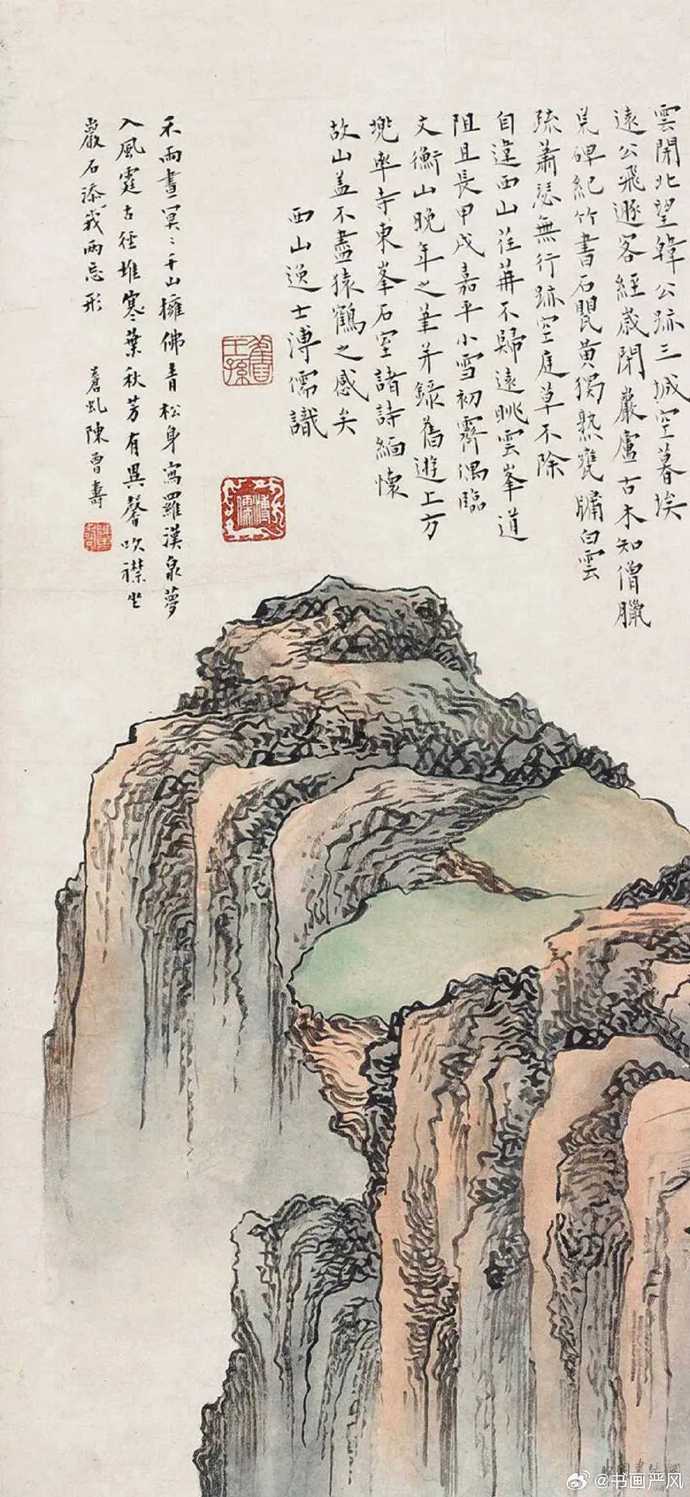 雲開北望韓公跡三城空暮埃
遠公飛遯客經歲閉巖廬古木知僧臘
荒碑紀竹書石甖黃獨熟甕牖白雲
疏蕭瑟無行跡空庭草不除
自違西山荏苒不歸遠眺雲峯道
阻且長甲戌嘉平小雪初霽偶臨
文衡山晚年之筆并錄舊遊上方
兜率寺東峯石室諸詩緬懷
故山蓋不盡猿鶴之感矣
西山逸士溥儒識
舊王孫
溥儒
不雨晝冥冥千山擁佛青松身寫羅漢泉夢
入風霆古徑堆寒葉秋芳有異馨吹襟坐
巖石添我兩忘形
蒼虬陳曾壽
@书画严风